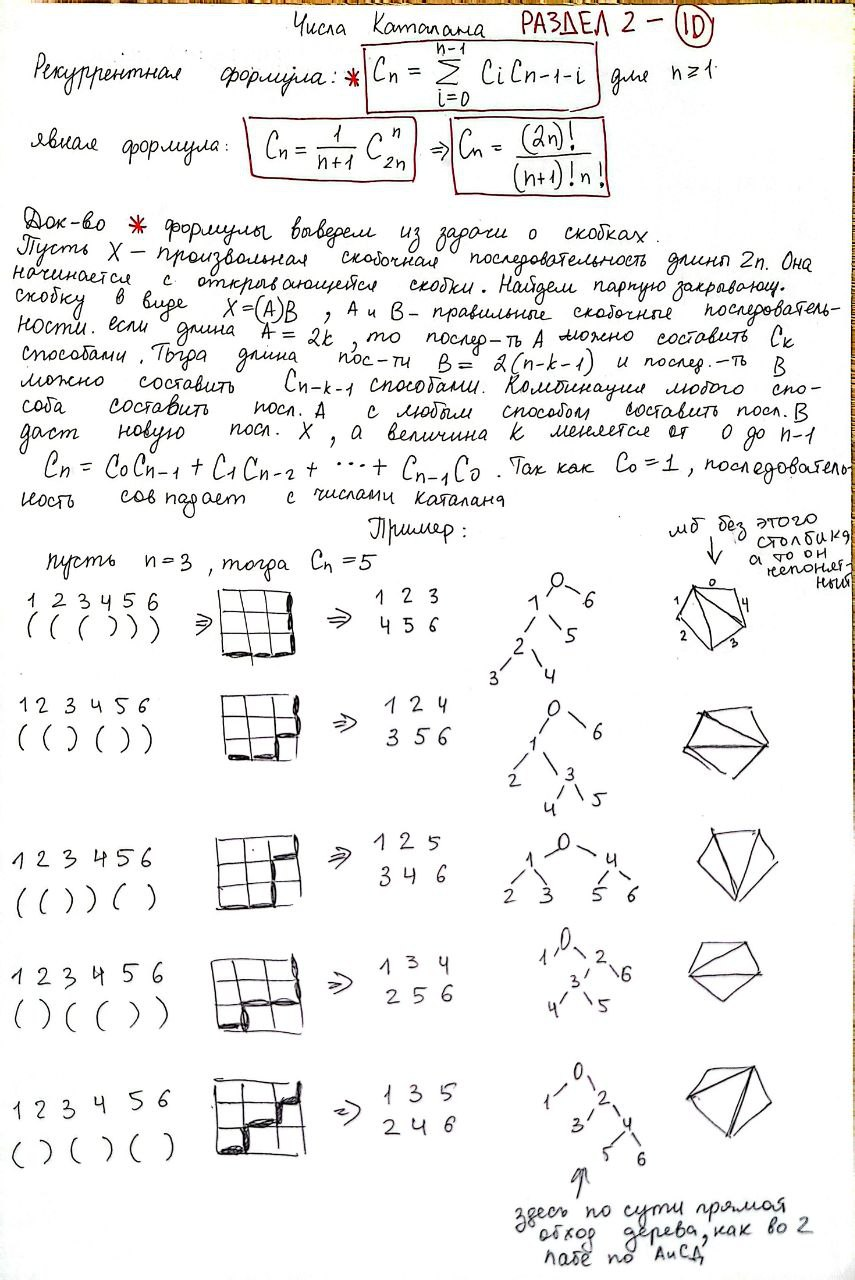 Числа Каталана РАЗДЕЛ 2 – 10
Рекуррентная формула: * Cn = n-1 ∑ i=0 CiCn-1-i для n≥1
явная формула: Cn = 1/(n+1) C n 2n ⇒ Cn = (2n)!/((n+1)!n!)
Док-во * формулы выведем из задачи о скобках.
Пусть X – произвольная скобочная последовательность длины 2n. Она
начинается с открывающейся скобки. Найдем парную закрывающ.
скобку в виде X=(A)B, A и B – правильные скобочные последователь-
ности. если длина A = 2k, то послед-ть A можно составить Ck
способами. Тогда длина пос-ти B = 2(n-k-1) и послед.-ть B
можно составить Cn-k-1 способами. Комбинация любого спо-
соба составить посл. A с любым способом составить посл. B
даст новую посл. X, а величина k меняется от 0 до n-1
Cn = C0Cn-1 + C1Cn-2 + ... + Cn-1C0. Так как C0=1, последователь-
ность совпадает с числами каталана
Пример:
мб без этого
столбика,
а то он
непонят-
ный
пусть n=3, тогда Cn=5
1 2 3 4 5 6
( ( ( ) ) ) ⇒ ⇒
1 2 3
4 5 6
0
1 6
2 5
3 4
0
1 4
2 3
1 2 3 4 5 6
( ( ) ( ) ) ⇒
1 2 4
3 5 6
0
1 6
2 3
4 5
1 2 3 4 5 6
( ( ) ) ( ) ⇒
1 2 5
3 4 6
0
1 4
2 3 5 6
1 2 3 4 5 6
( ) ( ( ) ) ⇒
1 3 4
2 5 6
0
1 2
3 6
4 5
1 2 3 4 5 6
( ) ( ) ( ) ⇒
1 3 5
2 4 6
0
1 2
3 4
5 6
здесь по сути прямой
обход дерева, как во 2
лабе по АиСД